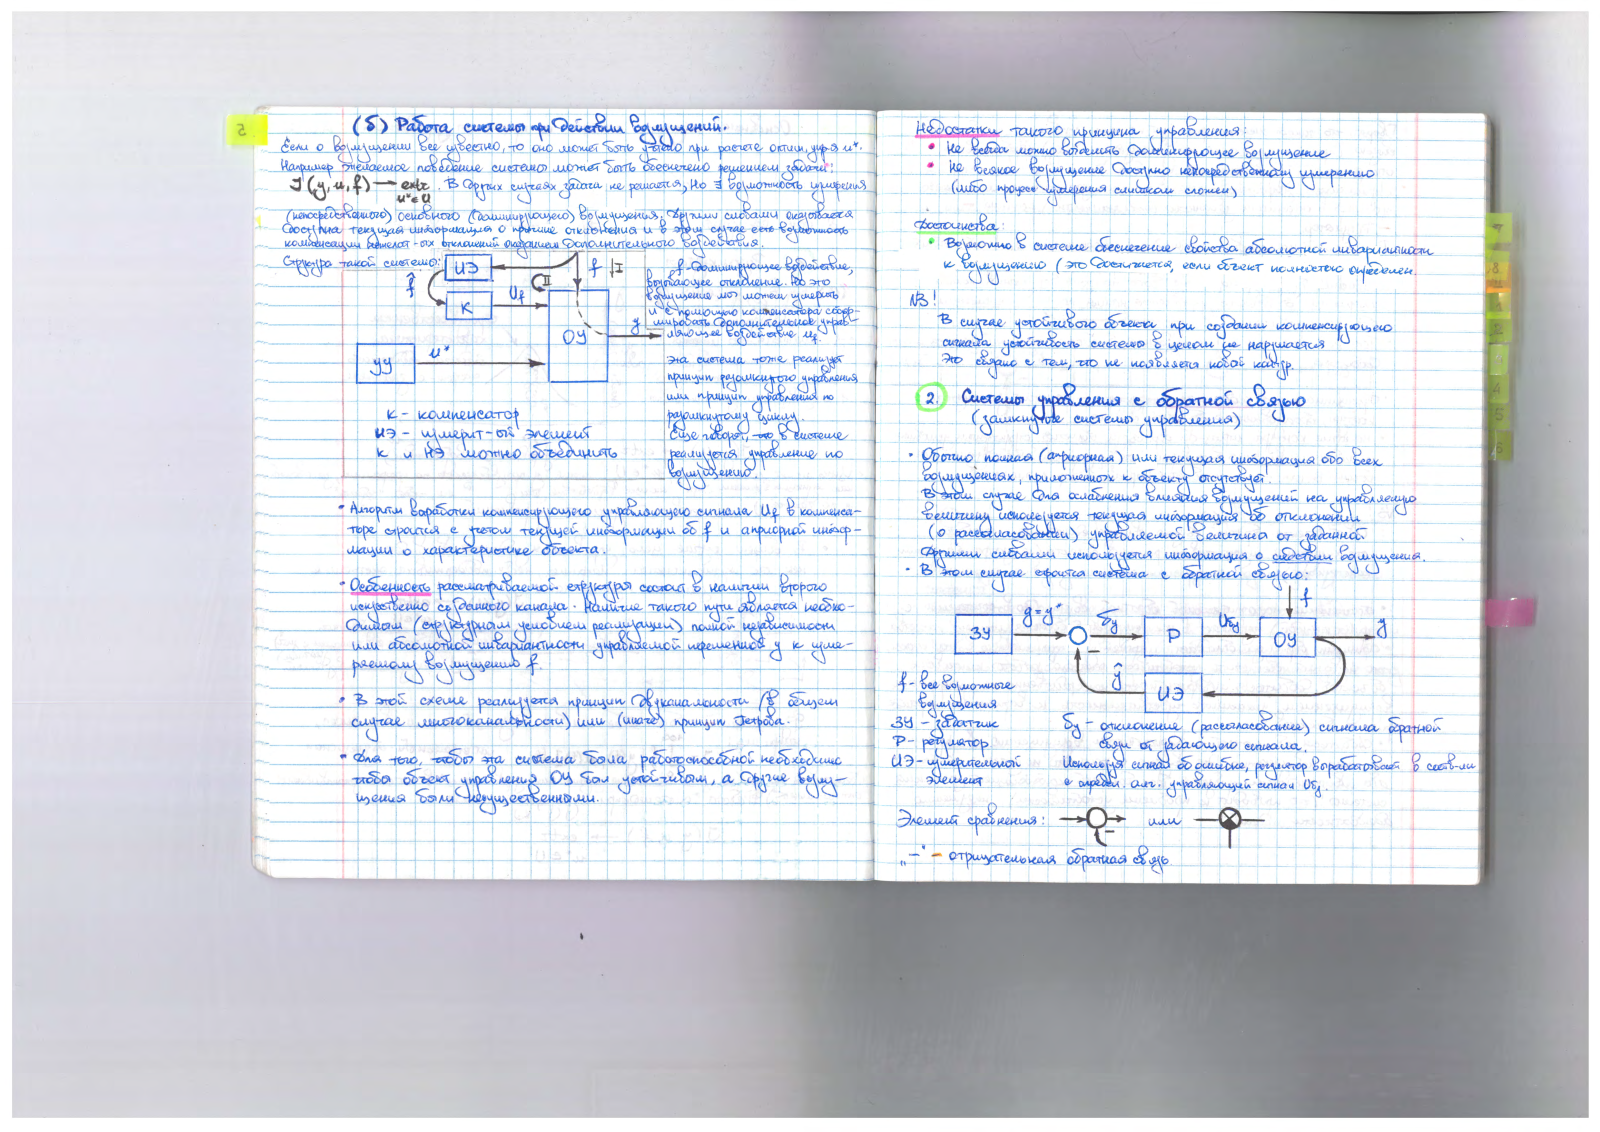 5
(б) Работа системы при действии возмущений.
Если о возмущении все известно, то оно может быть учтено при расчете оптим. упр-я u*.
Например желаемое поведение системы может быть обеспечено решением задачи:
J(y, u, f) → extr . В других случаях задача не решается, но ∃ возможность измерения
u*∈U
(непосредственного) основного (доминирующего) возмущения. Другими словами оказывается
доступна текущая информация о причине отклонения и в этом случае есть возможность
компенсации нежелат-ых отклонений оказанием дополнительного воздействия.
Структура такой системы:
ИЭ
f
I
II
f̂
К
Uf
ОУ
y
УУ
u*
f - доминирующее воздействие,
вызывающее отклонение. Но это
возмущение мы можем измерить
и с помощью компенсатора сфор-
мировать дополнительное управ-
ляющее воздействие uf.
Эта система тоже реализует
принцип разомкнутого управления
или принцип управления по
разомкнутому циклу.
Еще говорят, что в системе
реализуется управление по
возмущению.
К - компенсатор
ИЭ - измерит-ый элемент
К и ИЭ можно объединить
• Алгоритм выработки компенсирующего управляющего сигнала Uf в компенса-
торе строится с учетом текущей информации об f и априорной инфор-
мации о характеристике объекта.
• Особенность рассматриваемой структуры состоит в наличии второго
искуственно созданного канала. Наличие такого пути является необхо-
димым (структурным условием реализации) полной независимости
или абсолютной инвариантности управляемой переменной y к изме-
ряемому возмущению f.
• В этой схеме реализуется принцип двуканальности (в общем
случае многоканальности) или (иначе) принцип Петрова.
• Для того, чтобы эта система была работоспособной необходимо
чтобы объект управления ОУ был устойчивым, а другие возму-
щения были несущественными.
Недостатки такого принципа управления:
• Не всегда можно выделить доминирующее возмущение
• Не всякое возмущение доступно непосредственному измерению
(либо процесс измерения слишком сложен)
Достоинства:
• Возможно в системе обеспечение свойства абсолютной инвариантности
к возмущению (это достигается, если объект полностью определен.
NB!
В случае устойчивого объекта при создании компенсирующего
сигнала устойчивость системы в целом не нарушается
Это связано с тем, что не появляется новый контур.
2. Системы управления с обратной связью
(замкнутые системы управления)
• Обычно полная (априорная) или текущая информация обо всех
возмущениях, приложенных к объекту отсутствует.
В этом случае для ослабления влияния возмущений на управляемую
величину используется текущая информация об отклонении
(о рассогласовании) управляемой величины от заданной
Другими словами используется информация о следствии возмущения.
• В этом случае строится система с обратной связью:
f
ЗУ
g=y*
δy
−
Р
Uδy
ОУ
y
ŷ
ИЭ
f - все возможные
возмущения
ЗУ - задатчик
Р - регулятор
ИЭ - измерительный
элемент
δy - отклонение (рассогласование) сигнала обратной
связи от задающего сигнала.
Используя сигнал об ошибке, регулятор вырабатывает в соотв-ии
с определ. алг. управляющий сигнал Uδy.
Элемент сравнения: − или
„−“ - отрицательная обратная связь